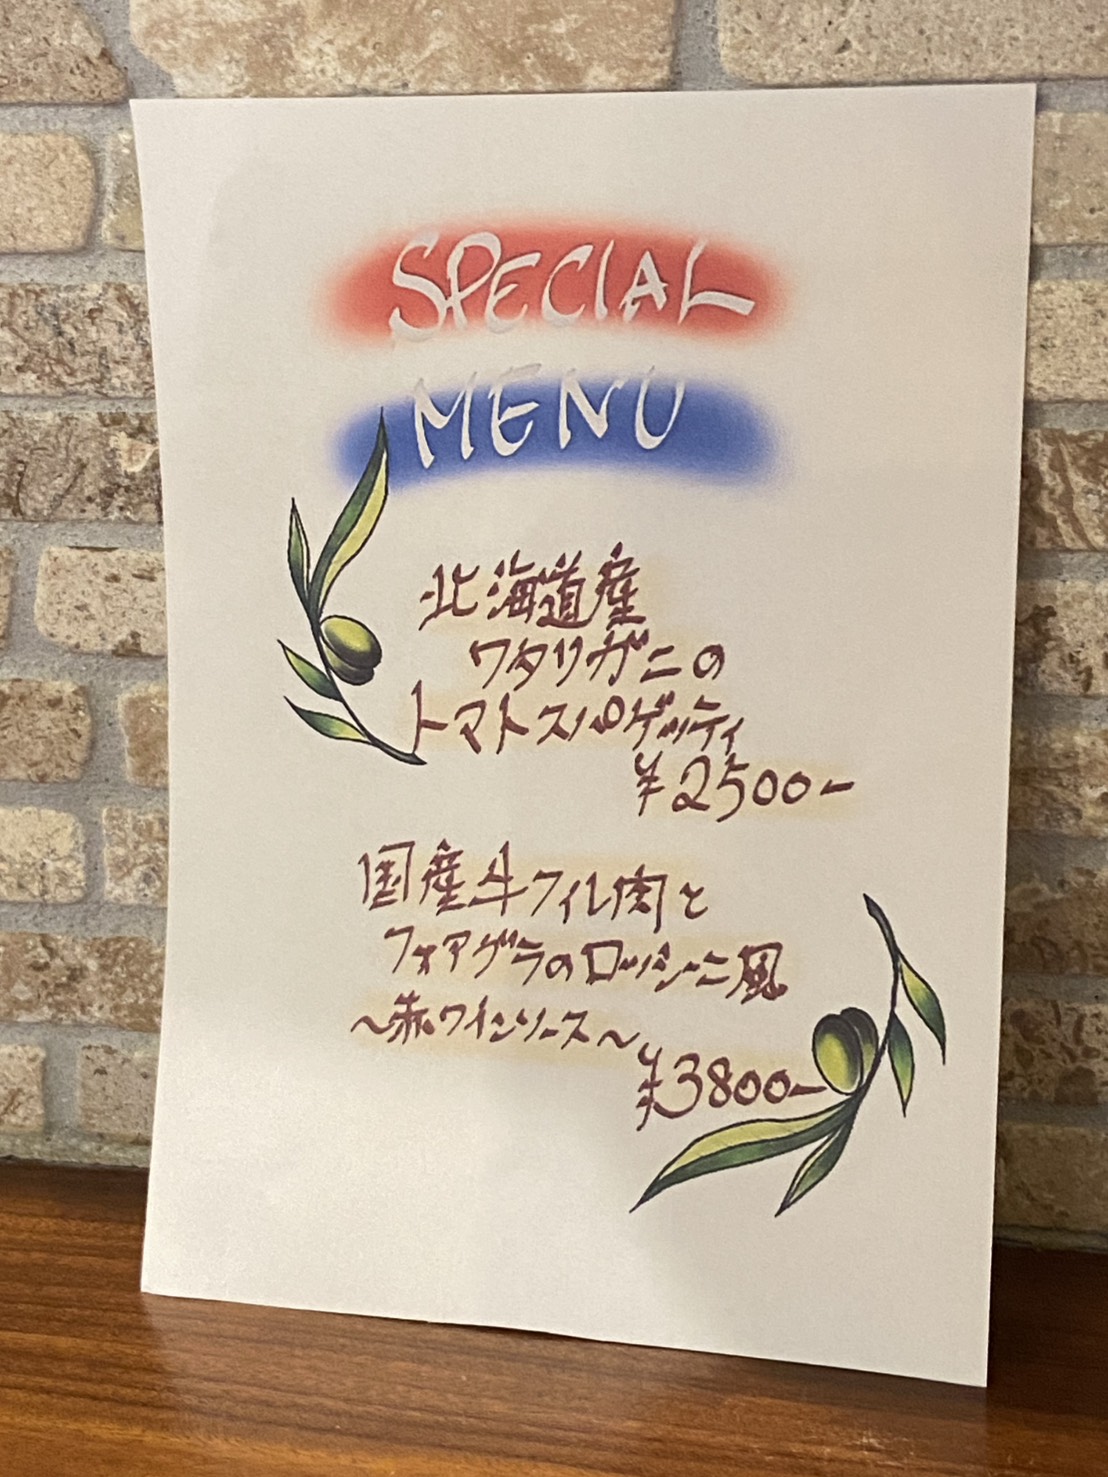 SPECIAL
MENU
北海道産
ワタリガニの
トマトスパゲッティ
¥2500-
国産牛フィレ肉と
フォアグラのロッシーニ風
~赤ワインソース~
¥3800-